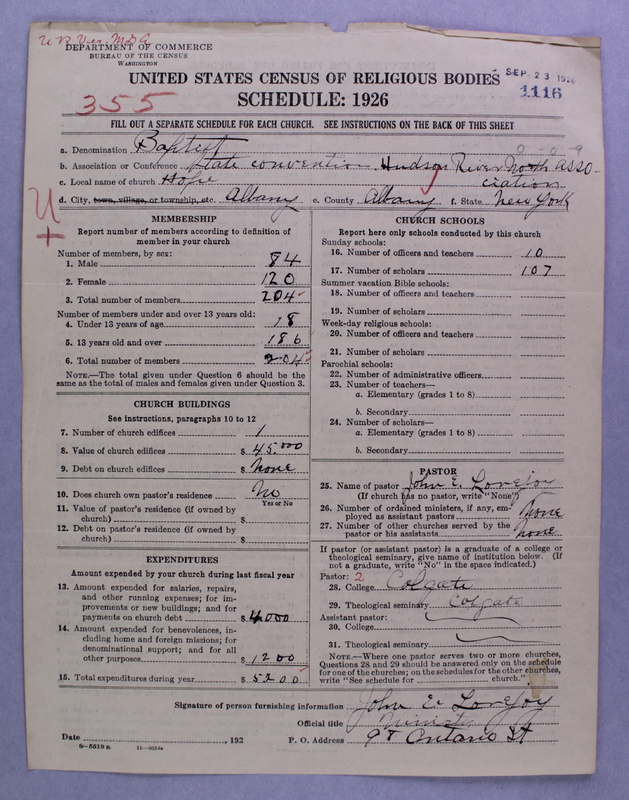 DEPARTMENT OF COMMERCE
BUREAU OF THE CENSUS
WASHINGTON
UNITED STATES CENSUS OF RELIGIOUS BODIES
SEP 23 1926
SCHEDULE: 1926
1116
355
FILL OUT A SEPARATE SCHEDULE FOR EACH CHURCH. SEE INSTRUCTIONS ON THE BACK OF THIS SHEET
a. Denomination Baptist
b. Association or Conference State convention Hudson River North asso-
ciation
c. Local name of church Hope
d. City, town, village, or township, etc. Albany e. County Albany f. State New York
MEMBERSHIP
Report number of members according to definition of
member in your church
Number of members, by sex:
1. Male 84
2. Female 120
3. Total number of members 204
Number of members under and over 13 years old:
4. Under 13 years of age 18
5. 13 years old and over 186
6. Total number of members 204
NOTE.—The total given under Question 6 should be the
same as the total of males and females given under Question 3.
CHURCH BUILDINGS
See instructions, paragraphs 10 to 12
7. Number of church edifices 1
8. Value of church edifices $ 45.000
9. Debt on church edifices $ None
10. Does church own pastor's residence No
Yes or No
11. Value of pastor's residence (if owned by
church) $
12. Debt on pastor's residence (if owned by
church) $
EXPENDITURES
Amount expended by your church during last fiscal year
13. Amount expended for salaries, repairs,
and other running expenses; for im-
provements or new buildings; and for
payments on church debt $ 4000
14. Amount expended for benevolences, in-
cluding home and foreign missions; for
denominational support; and for all
other purposes $ 1200
15. Total expenditures during year $ 5200
CHURCH SCHOOLS
Report here only schools conducted by this church
Sunday schools:
16. Number of officers and teachers 10
17. Number of scholars 107
Summer vacation Bible schools:
18. Number of officers and teachers
19. Number of scholars
Week-day religious schools:
20. Number of officers and teachers
21. Number of scholars
Parochial schools:
22. Number of administrative officers
23. Number of teachers—
a. Elementary (grades 1 to 8)
b. Secondary
24. Number of scholars—
a. Elementary (grades 1 to 8)
b. Secondary
PASTOR
25. Name of pastor John E. Lovejoy
(If church has no pastor, write "None")
26. Number of ordained ministers, if any, em-
ployed as assistant pastors None
27. Number of other churches served by the
pastor or his assistants none
If pastor (or assistant pastor) is a graduate of a college or
theological seminary, give name of institution below. (If
not a graduate, write "No" in the space indicated.)
Pastor: 2
28. College Colgate
29. Theological seminary Colgate
Assistant pastor:
30. College
31. Theological seminary
NOTE.—Where one pastor serves two or more churches,
Questions 28 and 29 should be answered only on the schedule
for one of the churches; on the schedules for the other churches,
write "See schedule for church."
Signature of person furnishing information John E Lovejoy
Official title Minister
Date , 192
P. O. Address 98 Ontario St
8—5518a 11—9054a